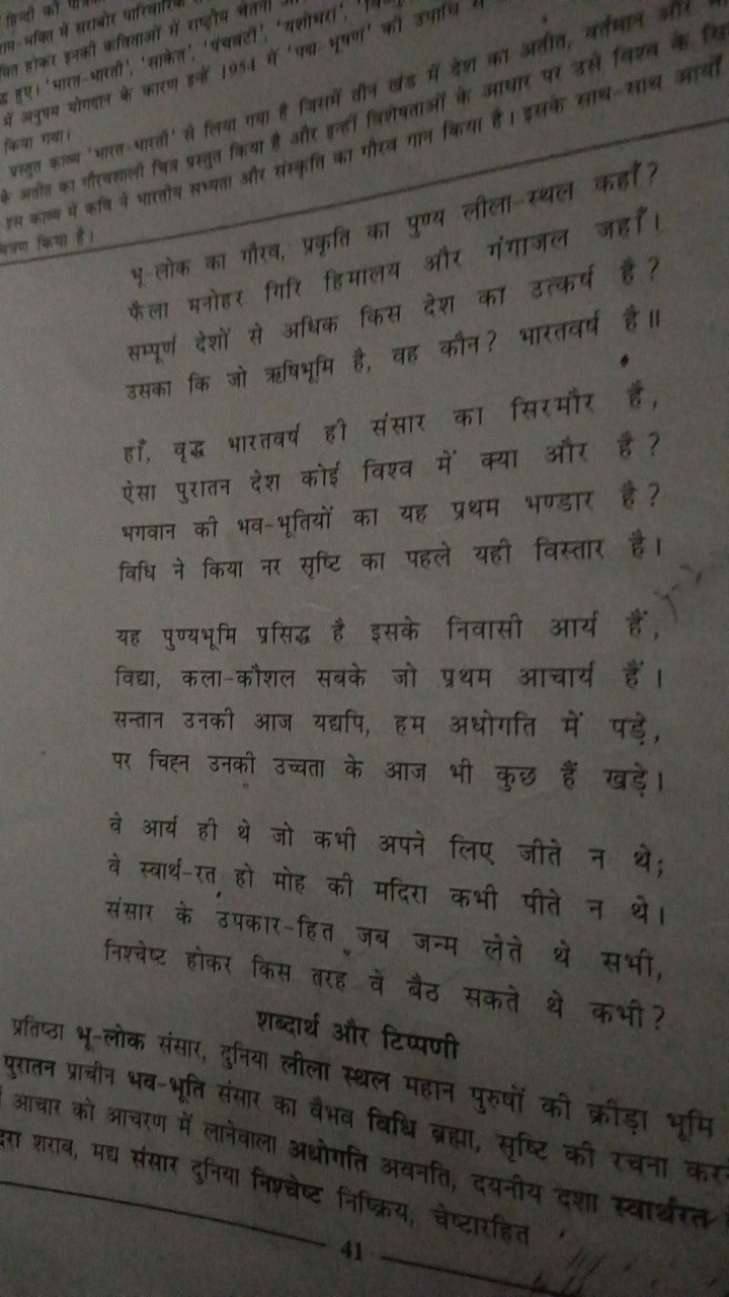 हिन्दी की
राम-भक्ति में सराबोर पारिवारिक
होकर इनकी कविताओं में राष्ट्रीय चेतना
हुए। 'भारत-भारती', 'साकेत', 'पंचवटी', 'यशोधरा',
में अनुपम योगदान के कारण इन्हें 1954 में 'पद्म-भूषण' की उपाधि
किया गया।
प्रस्तुत काव्य 'भारत-भारती' से लिया गया है जिसमें तीन खंड में देश का अतीत, वर्तमान और
के अतीत का गौरवशाली चित्र प्रस्तुत किया है और इन्हीं विशेषताओं के आधार पर उसे विश्व के
इस काव्य में कवि ने भारतीय सभ्यता और संस्कृति का गौरव गान किया है। इसके साथ-साथ आर्यों
किया है।
भू-लोक का गौरव, प्रकृति का पुण्य लीला-स्थल कहाँ?
फैला मनोहर गिरि हिमालय और गंगाजल जहाँ।
सम्पूर्ण देशों से अधिक किस देश का उत्कर्ष है?
उसका कि जो ऋषिभूमि है, वह कौन? भारतवर्ष है॥
हाँ, वृद्ध भारतवर्ष ही संसार का सिरमौर है,
ऐसा पुरातन देश कोई विश्व में क्या और है?
भगवान की भव-भूतियों का यह प्रथम भण्डार है?
विधि ने किया नर सृष्टि का पहले यही विस्तार है।
यह पुण्यभूमि प्रसिद्ध है इसके निवासी आर्य हैं,
विद्या, कला-कौशल सबके जो प्रथम आचार्य हैं।
सन्तान उनकी आज यद्यपि, हम अधोगति में पड़े,
पर चिह्न उनकी उच्चता के आज भी कुछ हैं खड़े।
वे आर्य ही थे जो कभी अपने लिए जीते न थे;
वे स्वार्थ-रत हो मोह की मदिरा कभी पीते न थे।
संसार के उपकार-हित जब जन्म लेते थे सभी,
निश्चेष्ट होकर किस तरह वे बैठ सकते थे कभी?
शब्दार्थ और टिप्पणी
प्रतिष्ठा भू-लोक संसार, दुनिया लीला स्थल महान पुरुषों की क्रीड़ा भूमि
पुरातन प्राचीन भव-भूति संसार का वैभव विधि ब्रह्मा, सृष्टि की रचना
आचार को आचरण में लानेवाला अधोगति अवनति, दयनीय दशा स्वार्थरत
शराब, मद्य संसार दुनिया निश्चेष्ट निष्क्रिय, चेष्टारहित
41